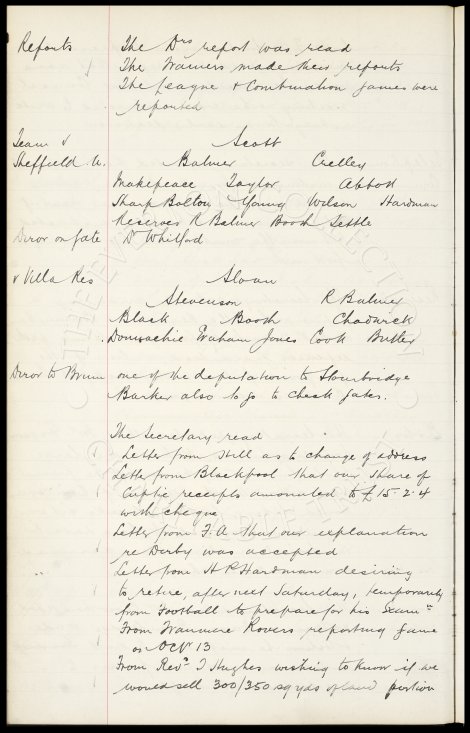 Reports The Drs report was read
The Trainers made their reports
The League & Combination games were
reported
Team v Scott
Sheffield U. Balmer Crelley
Makepeace Taylor Abbott
Sharp Bolton Young Wilson Hardman
Reserves R Balmer Booth Settle
Diror on gate Dr Whitford
v Villa Res Sloan
Stevenson R Balmer
Black Booth Chadwick
Donnachie Graham Jones Cook Butler
Diror to Brum one of the deputation to Stourbridge
Barker also to go to check gates.
The Secretary read
Letter from Hill as to change of address
Letter from Blackpool that our share of
Cuptie receipts amounted to £15-2-4
with cheque
Letter from F.A that our explanation
re Derby was accepted
Letter from H P Hardman desiring
to retire, after next Saturday, temporarily
from Football to prepare for his Examn
From Tranmere Rovers reporting game
on Oct 13
From Revd T Hughes wishing to know if we
would sell 300/350 sq yds of land portion